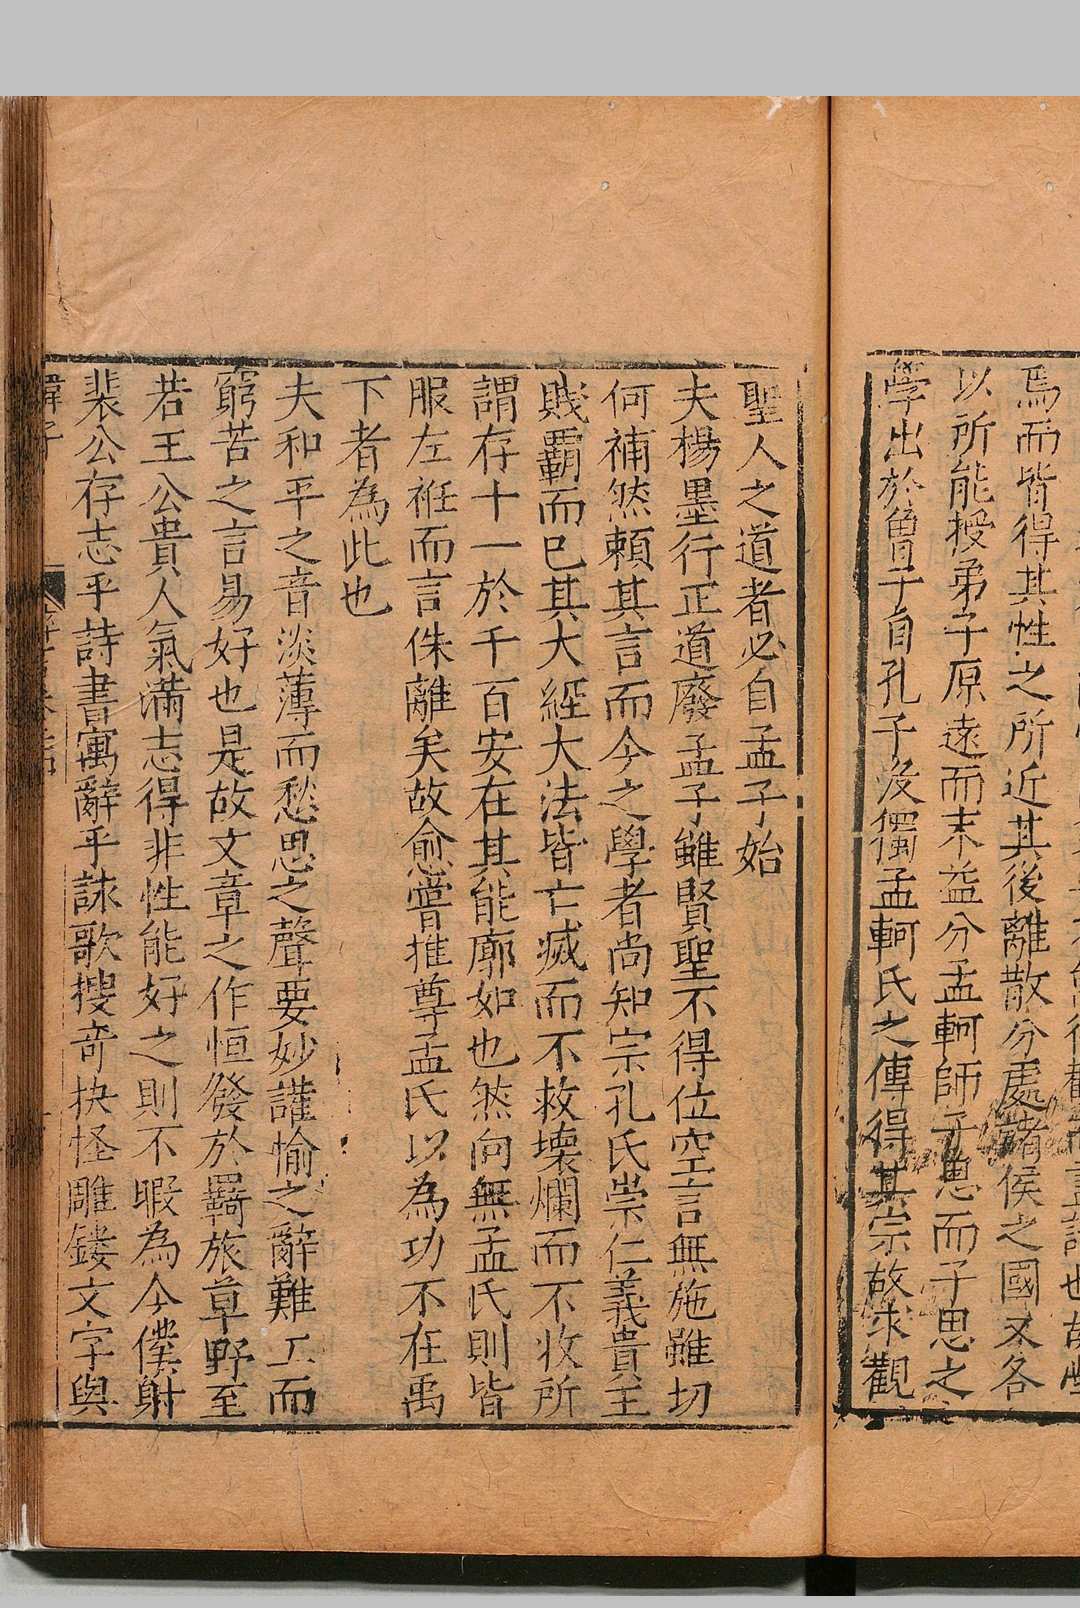 焉而皆得其性之所近其後離散分處諸侯之國又各
以所能授弟子原遠而末益分孟軻師子思而子思之
學出於曾子自孔子没獨孟軻氏之傳得其宗故求觀
聖人之道者必自孟子始
夫楊墨行正道廢孟子雖賢聖不得位空言無施雖切
何補然賴其言而今之學者尚知宗孔氏崇仁義貴王
賤覇而已其大經大法皆亡滅而不救壊爛而不收所
謂存十一於千百安在其能廓如也然向無孟氏則皆
服左衽而言侏離矣故愈嘗推尊孟氏以為功不在禹
下者為此也
夫和平之音淡薄而愁思之聲要妙讙愉之辭難工而
窮苦之言易好也是故文章之作恒發於羇旅草野至
若王公貴人氣滿志得非性能好之則不暇為今僕射
裴公存志乎詩書寓辭乎詠歌搜奇抉怪雕鏤文字與